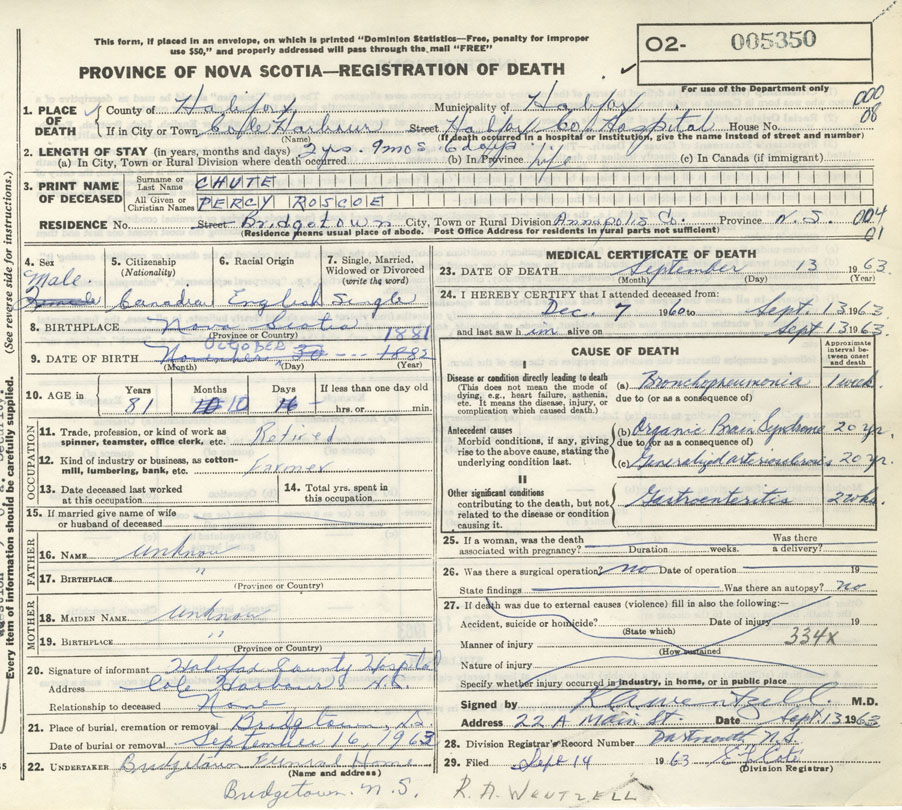 This form, if placed in an envelope, on which is printed "Dominion Statistics—Free, penalty for improper
use $50," and properly addressed will pass through the mail "FREE"
PROVINCE OF NOVA SCOTIA—REGISTRATION OF DEATH
O2- 005350
For use of the Department only
000
08
1. PLACE OF DEATH
County of Halifax Municipality of Halifax
If in City or Town Cole Harbour Street Halifax Co. Hospital House No.
(Name) (If death occurred in a hospital or institution, give the name instead of street and number)
2. LENGTH OF STAY (in years, months and days) 2 yrs. 9 mos. 6 days
(a) In City, Town or Rural Division where death occurred (b) In Province life (c) In Canada (if immigrant)
3. PRINT NAME OF DECEASED
Surname or Last Name CHUTE
All Given or Christian Names PERCY ROSCOE
RESIDENCE No. Street Bridgetown City, Town or Rural Division Annapolis Co. Province N.S. 004
01
(Residence means usual place of abode. Post Office Address for residents in rural parts not sufficient)
4. Sex 5. Citizenship (Nationality) 6. Racial Origin 7. Single, Married, Widowed or Divorced (write the word)
Male.
Female Canadian English Single
8. BIRTHPLACE Nova Scotia
(Province or Country)
October 1881
9. DATE OF BIRTH November 30 --- 1882
(Month) (Day) (Year)
10. AGE in Years Months Days If less than one day old
81 10 10 16 - hrs. or min.
OCCUPATION
11. Trade, profession, or kind of work as spinner, teamster, office clerk, etc. Retired
12. Kind of industry or business, as cotton-mill, lumbering, bank, etc. Farmer
13. Date deceased last worked at this occupation 14. Total yrs. spent in this occupation
15. If married give name of wife or husband of deceased
FATHER
16. NAME unknown
17. BIRTHPLACE "
(Province or Country)
MOTHER
18. MAIDEN NAME unknown
19. BIRTHPLACE "
(Province or Country)
20. Signature of informant Halifax County Hospital
Address Cole Harbour N.S.
Relationship to deceased None
21. Place of burial, cremation or removal Bridgetown, N.S.
Date of burial or removal September 16, 1963
22. UNDERTAKER Bridgetown Funeral Home
(Name and address)
Bridgetown. N.S.
MEDICAL CERTIFICATE OF DEATH
23. DATE OF DEATH September 13 1963.
(Month) (Day) (Year)
24. I HEREBY CERTIFY that I attended deceased from:
Dec. 7 1960 to Sept. 13 1963
and last saw h im alive on Sept 13 1963
CAUSE OF DEATH
Approximate interval between onset and death
I
Disease or condition directly leading to death
(This does not mean the mode of dying, e.g., heart failure, asthenia, etc. It means the disease, injury, or complication which caused death.)
(a) Bronchopneumonia 1 week
due to (or as a consequence of)
Antecedent causes
Morbid conditions, if any, giving rise to the above cause, stating the underlying condition last.
(b) Organic Brain Syndrome 20 yr.
due to (or as a consequence of)
(c) Generalized arteriosclerosis 20 yr.
II
Other significant conditions
contributing to the death, but not related to the disease or condition causing it.
Gastroenteritis 2 wks.
25. If a woman, was the death associated with pregnancy? Duration weeks. Was there a delivery?
26. Was there a surgical operation? no Date of operation 19
State findings Was there an autopsy? no
27. If death was due to external causes (violence) fill in also the following:—
Accident, suicide or homicide? Date of injury 19
(State which)
334X
Manner of injury
(How sustained
Nature of injury
Specify whether injury occurred in industry, in home, or in public place
Signed by M.D.
Address 22 A Main St. Date Sept. 13 1963
28. Division Registrar's Record Number Dartmouth N.S.
29. Filed Sept 14 1963
(Division Registrar)
R. A. WENTZELL
(See reverse side for instructions.)
Every item of information should be carefully supplied.